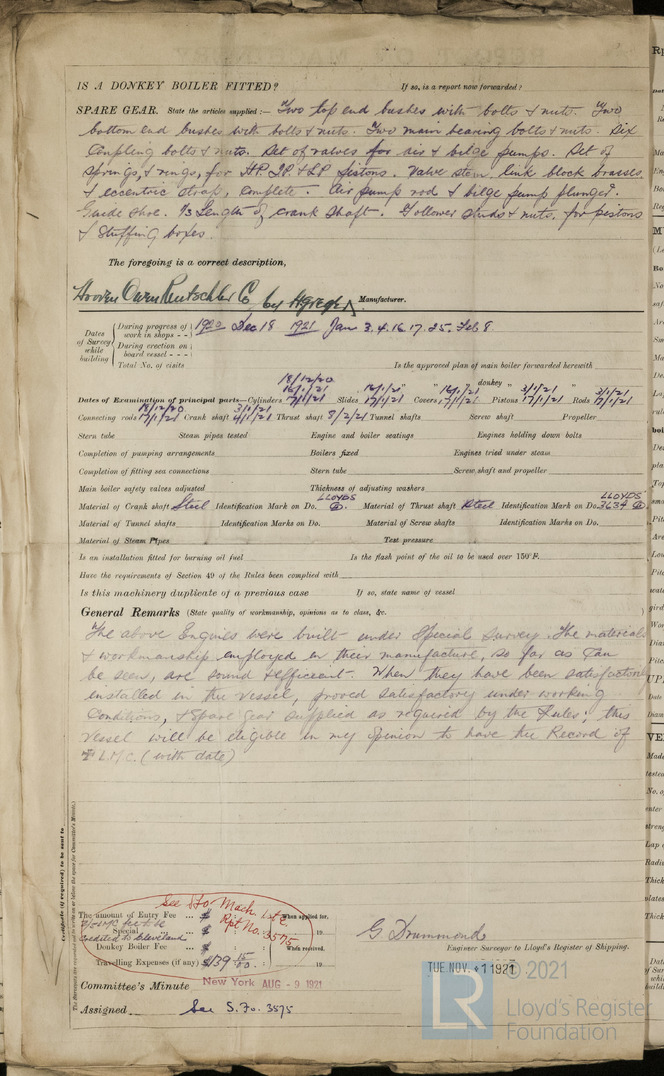 IS A DONKEY BOILER FITTED? If so, is a report now forwarded?
SPARE GEAR. State the articles supplied:— Two top end bushes with bolts & nuts. Two
bottom end bushes with bolts & nuts. Two main bearing bolts & nuts. Six
Coupling bolts & nuts. Set of valves for air & bilge pumps. Set of
springs, & rings, for H.P. I.P. & L.P. pistons. Valve stem, link block brasses,
& eccentric strap, complete. Air pump rod & bilge pump plunger.
Guide shoe. 1/3 Length of crank shaft. Follower studs & nuts, for pistons
& stuffing boxes.
The foregoing is a correct description,
Hooven Owens Rentschler Co by Manufacturer.
Dates of Survey while building
During progress of work in shops - - 1920 Dec 18 1921 Jan 3. 4. 16. 17. 25. Feb 8
During erection on board vessel - - -
Total No. of visits
Is the approved plan of main boiler forwarded herewith
" donkey "
Dates of Examination of principal parts—Cylinders 18/12/20 16/1/21 17/1/21 Slides 16/1/21 17/1/21 Covers 16/1/21 17/1/21 Pistons 3/1/21 17/1/21 Rods 3/1/21 17/1/21
Connecting rods 18/12/20 17/1/21 Crank shaft 3/1/21 4/1/21 Thrust shaft 8/2/21 Tunnel shafts Screw shaft Propeller
Stern tube Steam pipes tested Engine and boiler seatings Engines holding down bolts
Completion of pumping arrangements Boilers fixed Engines tried under steam
Completion of fitting sea connections Stern tube Screw shaft and propeller
Main boiler safety valves adjusted Thickness of adjusting washers
Material of Crank shaft Steel Identification Mark on Do. LLOYDS Material of Thrust shaft Steel Identification Mark on Do. LLOYDS 3634
Material of Tunnel shafts Identification Marks on Do. Material of Screw shafts Identification Marks on Do.
Material of Steam Pipes Test pressure
Is an installation fitted for burning oil fuel Is the flash point of the oil to be used over 150°F.
Have the requirements of Section 49 of the Rules been complied with
Is this machinery duplicate of a previous case If so, state name of vessel
General Remarks (State quality of workmanship, opinions as to class, &c.
The above Engines were built under Special Survey. The materials
& workmanship employed in their manufacture, so far as can
be seen, are sound & efficient. When they have been satisfactorily
installed in the vessel, proved satisfactory under working
Conditions, & Spare gear supplied as required by the Rules; this
vessel will be eligible in my opinion to have the Record of
L.M.C. (with date)
See Sfo. Mach. 1st E.
Rpt No. 3575
The amount of Entry Fee ... $ : : When applied for,
Special ... $ : : 19
credited to Cleveland
Donkey Boiler Fee ... $ : : When received,
Travelling Expenses (if any) $ 139 : 19
G Drummond
Engineer Surveyor to Lloyd's Register of Shipping.
TUE. NOV. 1 1921
Committee's Minute New York AUG - 9 1921
Assigned See S. Fo. 3575
© 2021
LR
Lloyd's Register
Foundation